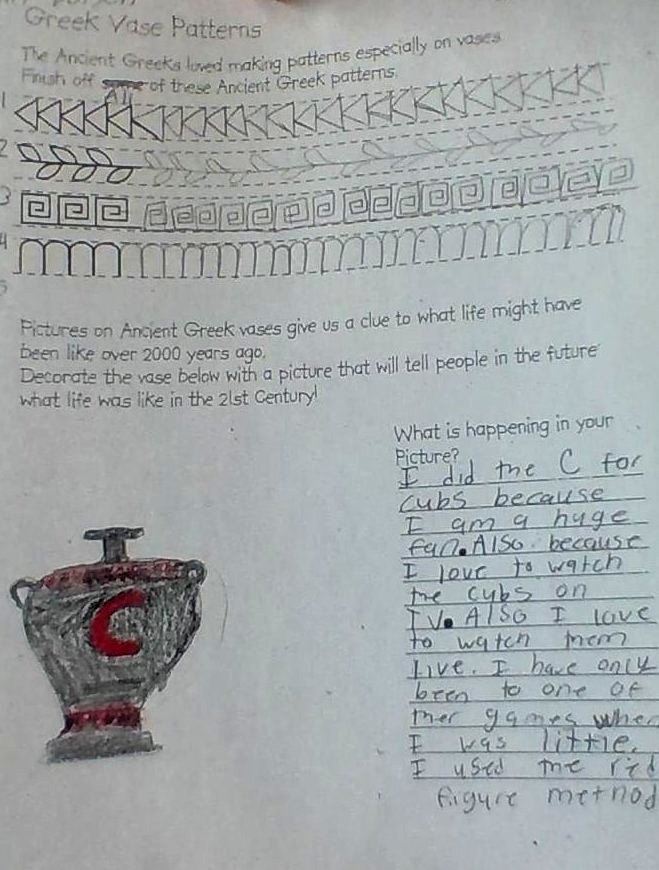 Greek Vase Patterns
The Ancient Greeks loved making patterns especially on vases
Finish off some of these Ancient Greek patterns.
All
1
2
3
4
5
Pictures on Ancient Greek vases give us a clue to what life might have
been like over 2000 years ago.
Decorate the vase below with a picture that will tell people in the future
what life was like in the 21st Century!
What is happening in your
Picture?
I did the C for
cubs because
I am a huge
fan. Also because
I love to watch
the cubs on
TV. Also I love
to watch them
live. I have only
been to one of
ther games when
I was little.
I used the red
figure method
C